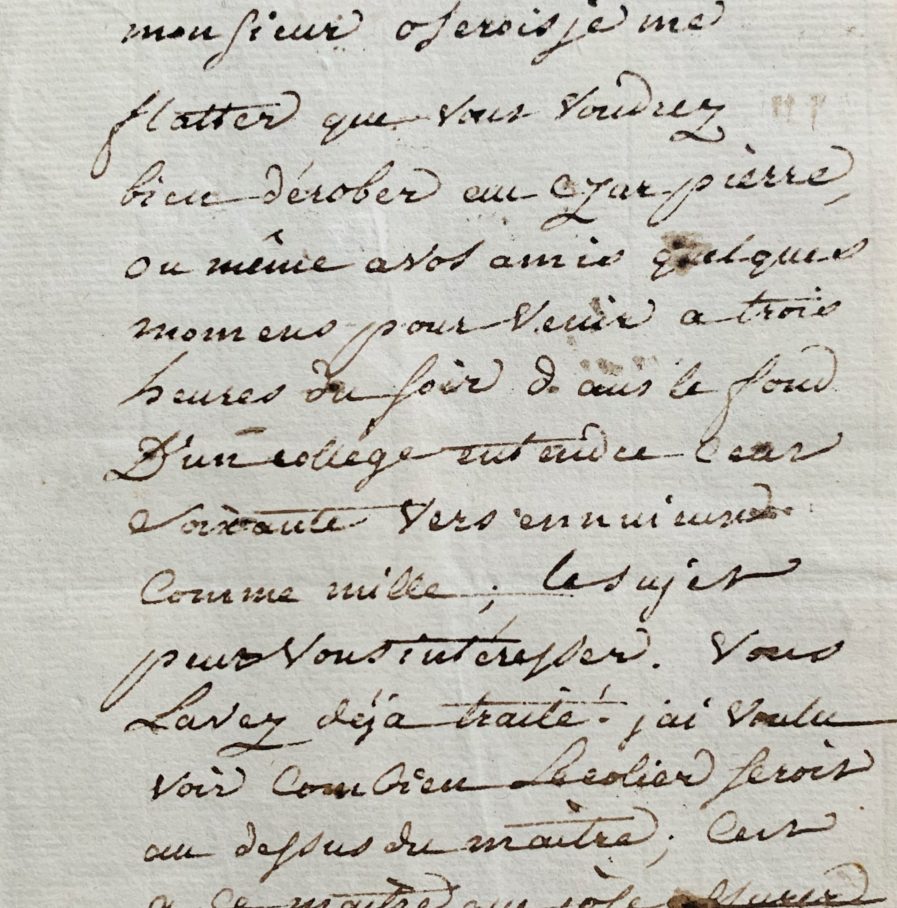 monsieur oserois je me
flatter que vous voudrez
bien dérober au czar pierre,
ou même a vos amis quelques
momens pour venir a trois
heures du soir dans le fond
D'un collège entendre cent
soixante vers ennuieux
comme mille; le sujet
peut vous intéresser. vous
Lavez déja traité. jai voulu
voir combien Lecolier seroit
au dessus du maître; cest
a ce maître que jose